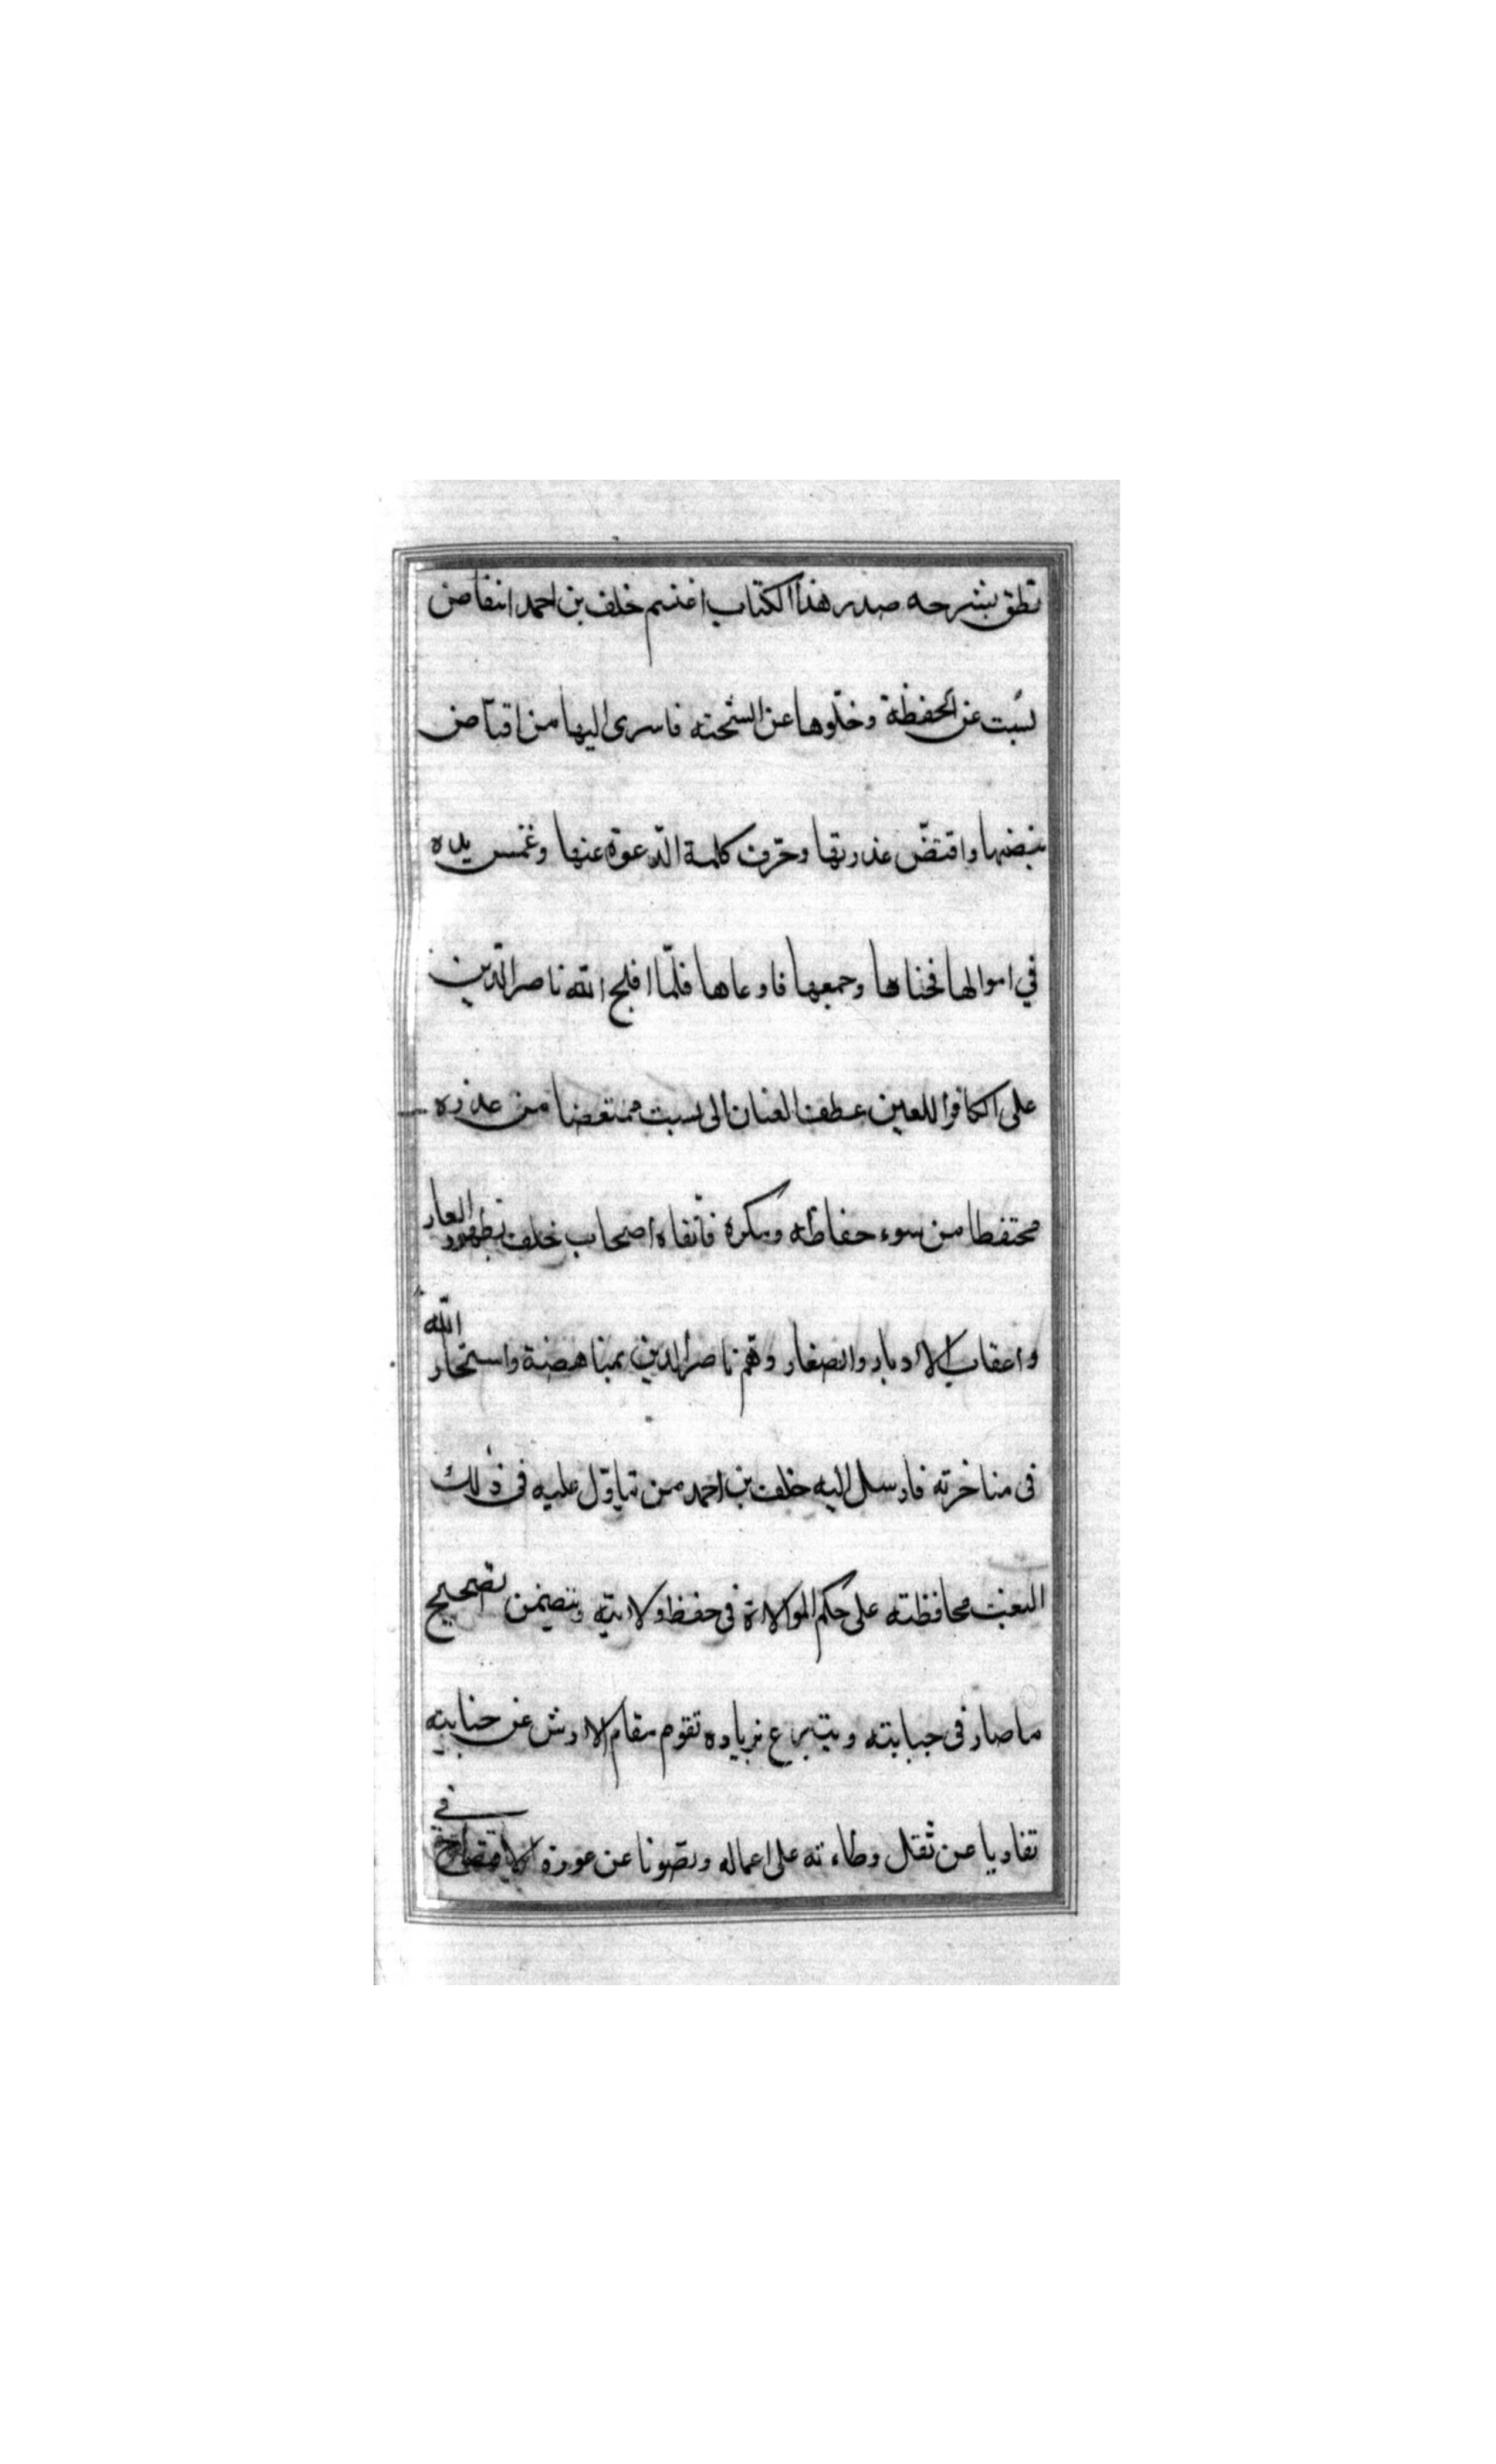 نطق بشرحه صدر هذا الكتاب اغتنم خلف بن احمد انتفاض
بُست عن الحفظة وخلّوها عن الشحنه فاسرى اليها من اقتاض
بيضتها وافتضّ عذرتها وحرّف كلمة الدّعوة عنها وغمس يده
في اموالها فجناها وجمعها فاوعاها فلمّا افلج الله ناصر الدّين
على الكافر اللعين عطف العنان الى بست ممتعضا من عذره
محتفظا من سوء حفاظه ومكره فاتقاه اصحاب خلف بظهور العار
واعقاب الادبار والصغار وهم ناصر الدين بمناهضة واستخار الله
فى مناخرته فارسل اليه خلف بن احمد من تياوّل عليه فى ذٰلك
البعث محافظته على حكم الموالاة فى حفظ ولايته ويتضمن تصحيح
ما صار فى جبايته ويتبرع بزياده تقوم مقام الارش عن جنايته
تفاديا عن ثقل وطاءته على اعماله وتصونا عن عورة الافتضاح في